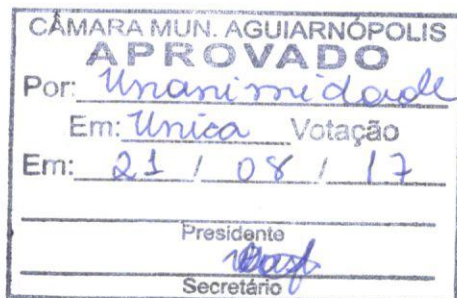 CÂMARA MUN. AGUIARNÓPOLIS
APROVADO
Por: Unanimidade
Em: Unica Votação
Em: 21 / 08 / 17
Presidente
Secretário